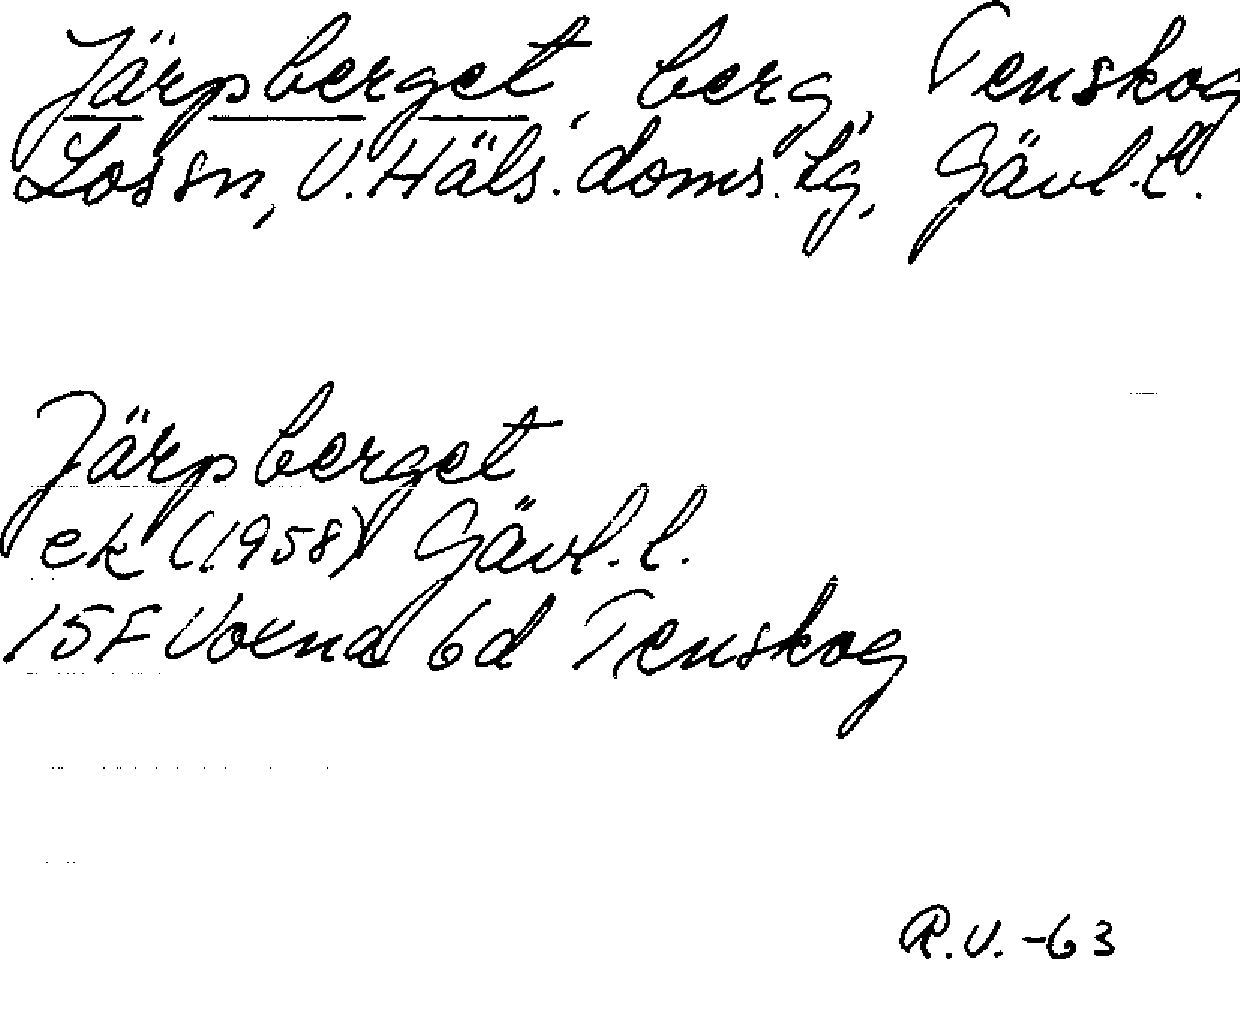 Järpberget, berg, Tenskog
Lossn, V. Häls. doms. lg, Gävl. l.
Järpberget
ek (1958) Gävl. l.
15F Voxna 6d Tenskog
R.V. -63